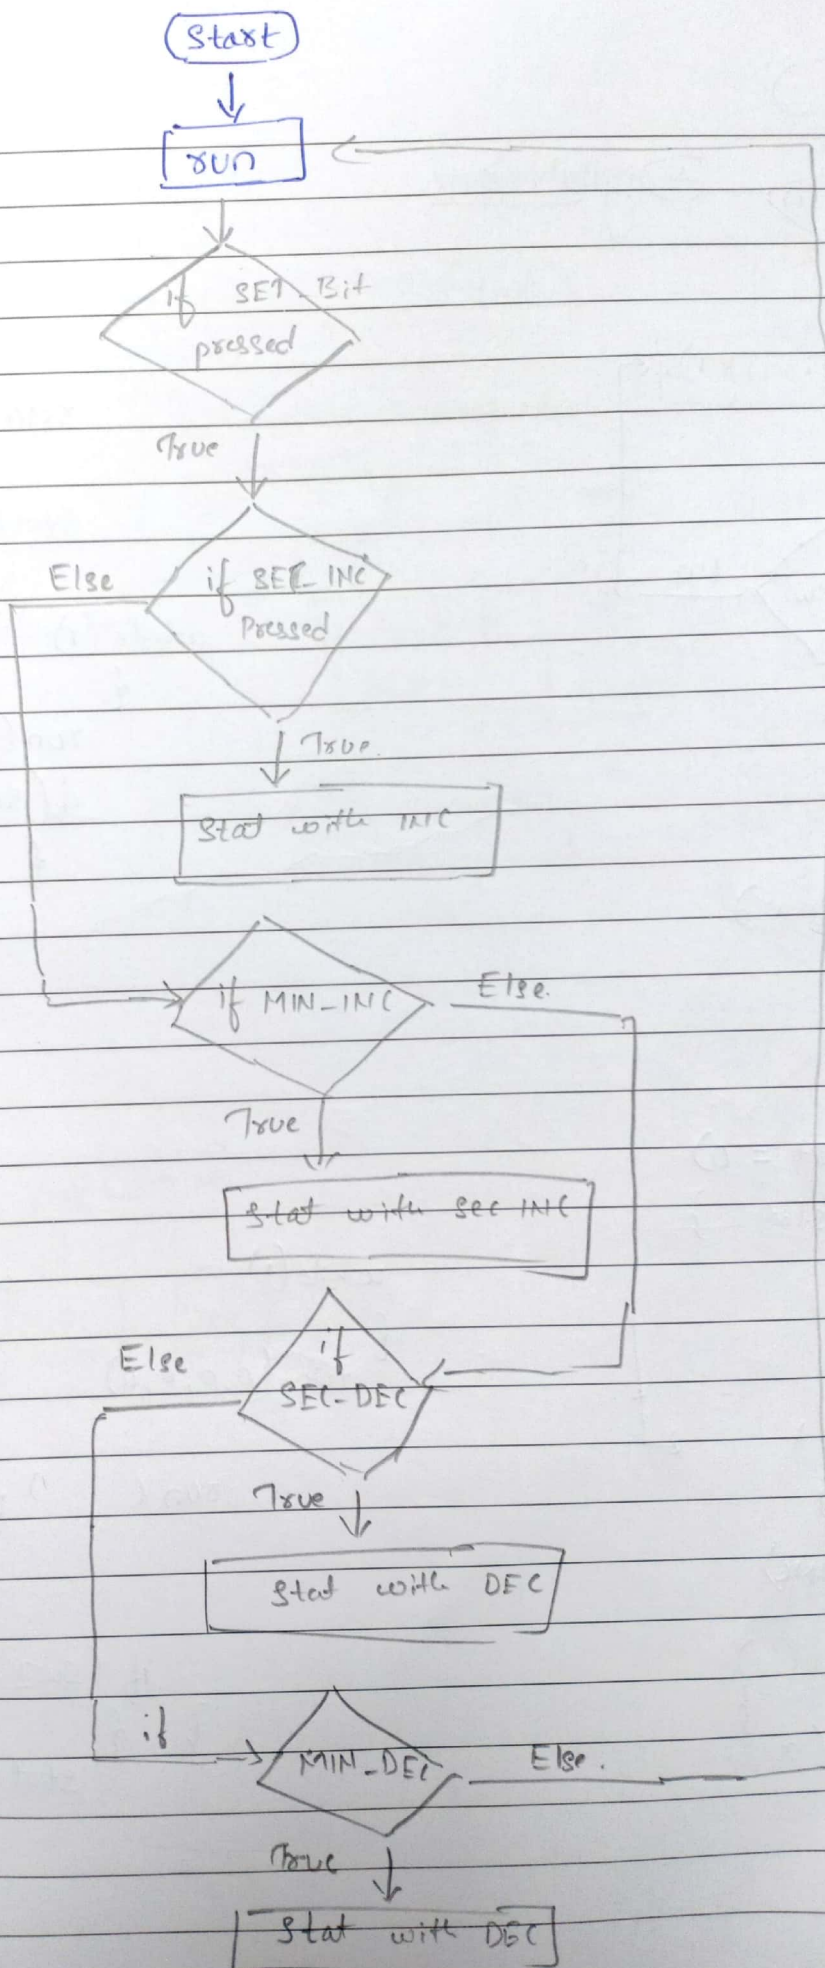 Start
run
if SET-Bit
pressed
True
Else
if SEC-INC
Pressed
True
Stat with INC
if MIN-INC
Else
True
Stat with Sec INC
if
Else
SEC-DEC
True
Stat with DEC
if
MIN-DEC
Else.
True
Stat with DEC